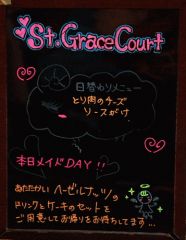 St.GraceCourt
日替わりメニュー
とり肉のチーズ
ソースがけ
本日メイドDAY!!
あたたかい ヘーゼルナッツの
ドリンクとケーキのセットを
ご用意してお帰りをお待ちしてます...